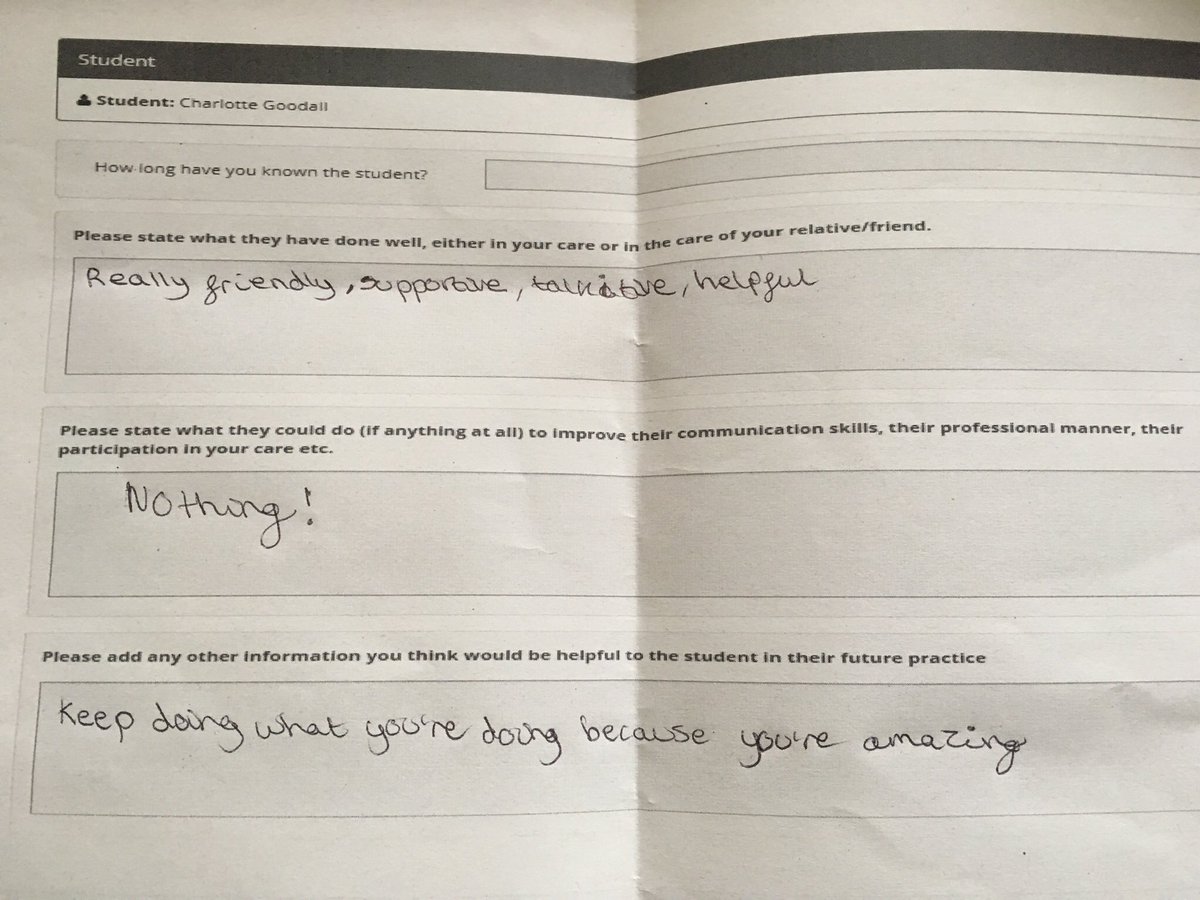 Student
Student: Charlotte Goodall
How long have you known the student?
Please state what they have done well, either in your care or in the care of your relative/friend.
Really friendly, supportive, talkative, helpful
Please state what they could do (if anything at all) to improve their communication skills, their professional manner, their
participation in your care etc.
Nothing!
Please add any other information you think would be helpful to the student in their future practice
Keep doing what you're doing because you're amazing